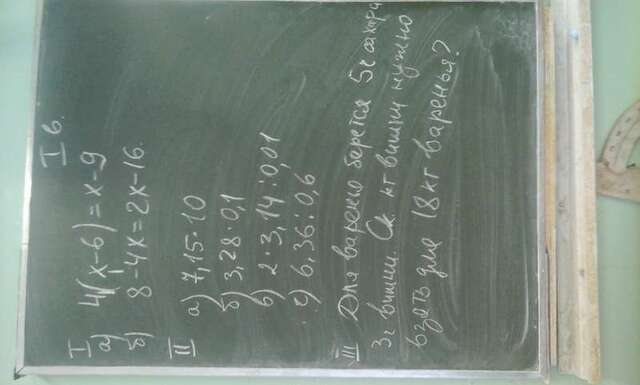 I в.
I
а) 4(x-6)=x-9
б) 8-4x=2x-16
II
а) 7,15·10
б) 3,28·0,1
в) 2·3,14:0,01
г) 6,36:0,6
III Для варенье берется 5ч сахара
3ч вишни. Ск. кг вишни нужно
взять для 18кг варенья?